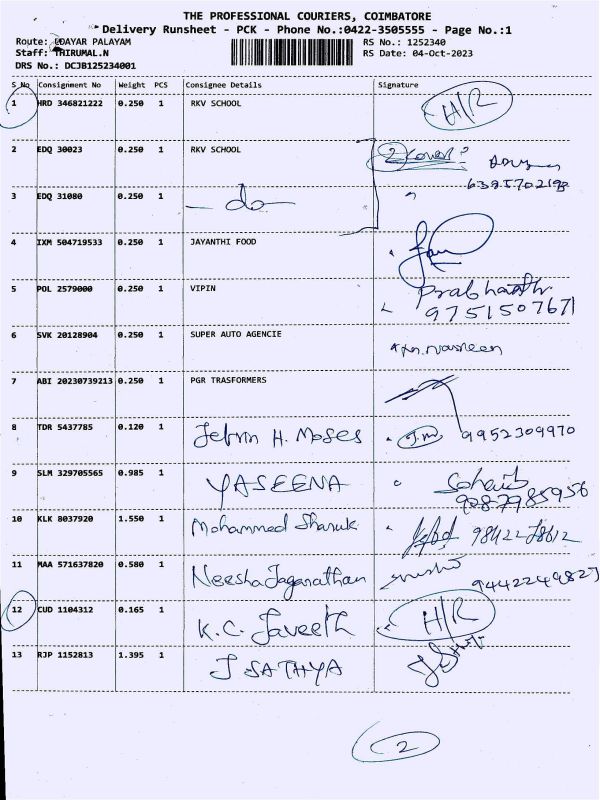 THE PROFESSIONAL COURIERS, COIMBATORE
Delivery Runsheet - PCK - Phone No.:0422-3505555 - Page No.:1
Route: UDAYAR PALAYAM RS No.: 1252340
Staff: THIRUMAL.N RS Date: 04-Oct-2023
DRS No.: DCJB125234001
S No Consignment No Weight PCS Consignee Details Signature
1 HRD 346821222 0.250 1 RKV SCHOOL H/R
2 EDQ 30023 0.250 1 RKV SCHOOL 2 Cover
3 EDQ 31080 0.250 1 - do -
4 IXM 504719533 0.250 1 JAYANTHI FOOD
5 POL 2579000 0.250 1 VIPIN Prabhaath
9751507671
6 SVK 20128904 0.250 1 SUPER AUTO AGENCIE
7 ABI 20230739213 0.250 1 PGR TRASFORMERS
8 TDR 5437785 0.120 1 Jebrin H. Moses 9952309970
9 SLM 329705565 0.985 1 YASEENA Sohaib
10 KLK 8037920 1.550 1 Mohammed Sharuk
11 MAA 571637820 0.580 1 Neesha Jaganathan 9442249827
12 CUD 1104312 0.165 1 K.C. Javeeth H/R
13 RJP 1152813 1.395 1 J SATHYA
2